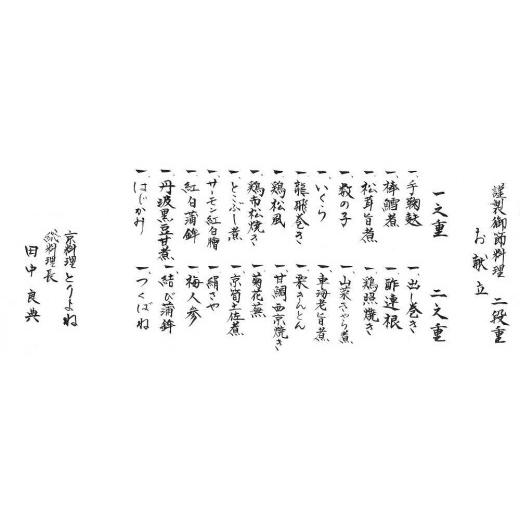 謹製御節料理 二段重
お献立
一之重
一、手鞠麩
一、棒鱈煮
一、松茸旨煮
一、数の子
一、いくら
一、龍飛巻き
一、鶏松風
一、鶏市松焼き
一、とこぶし煮
一、サーモン紅白膾
一、紅白蒲鉾
一、丹波黒豆甘煮
一、はじかみ
二之重
一、出し巻き
一、酢蓮根
一、鶏照焼き
一、山菜きゃら煮
一、車海老旨煮
一、栗きんとん
一、甘鯛西京焼き
一、菊花蕪
一、京筍土佐煮
一、絹さや
一、梅人参
一、結び蒲鉾
一、つくばね
京料理とりよね
総料理長
田中良典